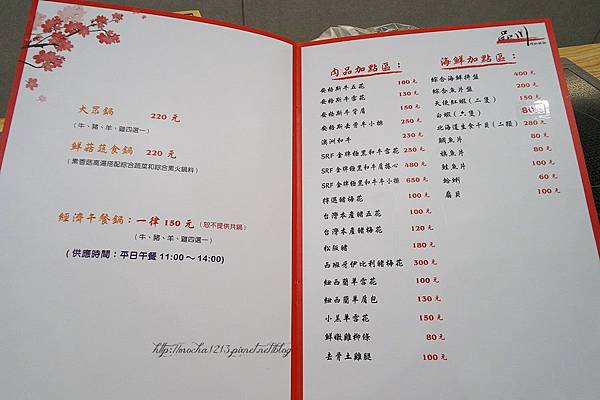 大眾鍋 220 元
(牛、豬、羊、雞四選一)
鮮菇蔬食鍋 220 元
(素香菇高湯搭配綜合蔬菜和綜合素火鍋料)
經濟午餐鍋：一律 150 元 (恕不提供共鍋)
(牛、豬、羊、雞四選一)
(供應時間：平日午餐 11:00～14:00)
http://mocha1213.pixnet.net/blog
肉品加點區：
安格斯牛五花 100元
安格斯牛雪花 130元
安格斯牛肩肉 150元
安格斯去骨牛小排 250元
澳洲和牛 230元
SRF金牌極黑和牛雪花 250元
SRF金牌極黑和牛肩捲心 480元
SRF金牌極黑和牛牛小排 650元
特選豬梅花 100元
台灣本產豬五花 100元
台灣本產豬梅花 120元
松阪豬 180元
西班牙伊比利豬梅花 300元
紐西蘭羊雪花 100元
紐西蘭羊肩包 130元
小羔羊雪花 150元
鮮嫩雞柳條 80元
去骨土雞腿 100元
品川
海鮮加點區：
綜合海鮮拼盤 400元
綜合魚片盤 200元
天使紅蝦(二隻) 150元
白蝦(六隻) 80元
北海道生食干貝(二顆) 280元
鯛魚片 80元
旗魚片 80元
鮭魚片 100元
蛤蜊 60元
扇貝 100元